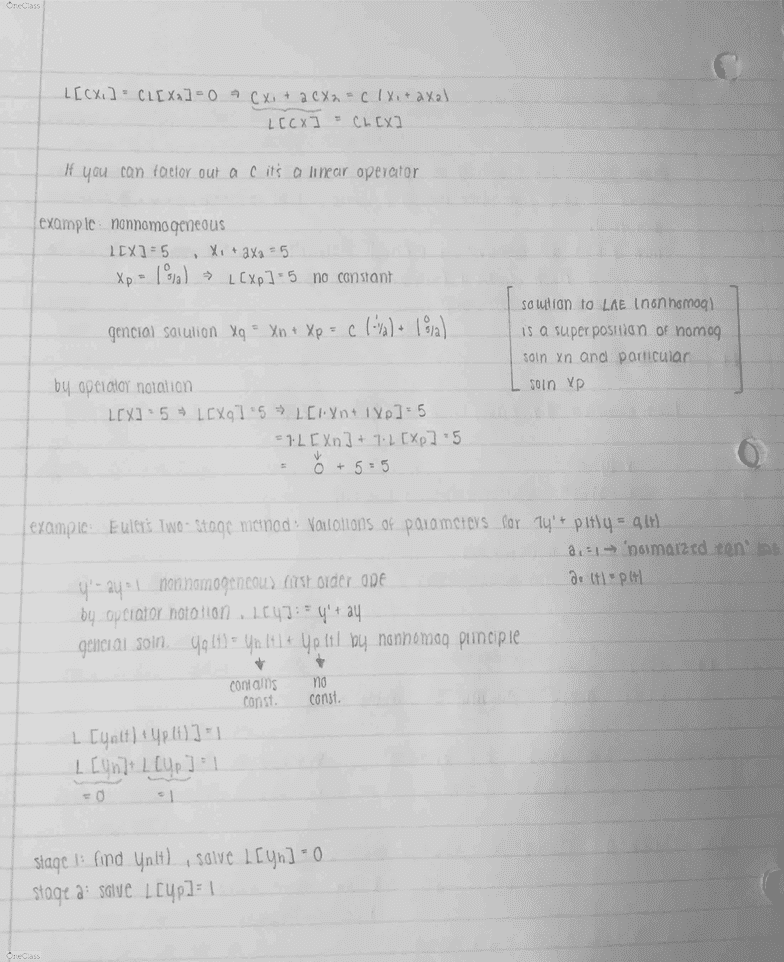 OneClass
L[CX₁] = CL[X₂] = 0 ⇒ CX₁ + 2CX₂ = C(X₁ + 2X₂)
L[CX] = CL[X]
If you can factor out a C it's a linear operator
example: nonhomogeneous
L[X] = 5 , X₁ + 2X₂ = 5
Xp = (0 5/2) ⇒ L[Xp] = 5 no constant
general solution Xg = Xn + Xp = C (-1 1/2) + (0 5/2)
[solution to LAE (nonhomog)
is a superposition of homog
soln Xn and particular
soln Xp]
by operator notation
L[X] = 5 ⇒ L[Xg] = 5 ⇒ L[1·Xn + 1Xp] = 5
= 1·L[Xn] + 1·L[Xp] = 5
↓
= 0 + 5 = 5
example: Euler's Two-Stage method: Variations of parameters for 1y' + p(t)y = q(t)
a₁ = 1 → "normarzed
a₀(t) = p(t)
y' - 2y = 1 nonhomogeneous first order ODE
by operator notation, L[y] := y' + 2y
general soln. yg(t) = yn(t) + yp(t) by nonhomog principle
↓ ↓
contains no
const. const.
L[yn(t) + yp(t)] = 1
L[yn] + L[yp] = 1
= 0 = 1
stage 1: find yn(t) , solve L[yn] = 0
stage 2: solve L[yp] = 1
OneClass